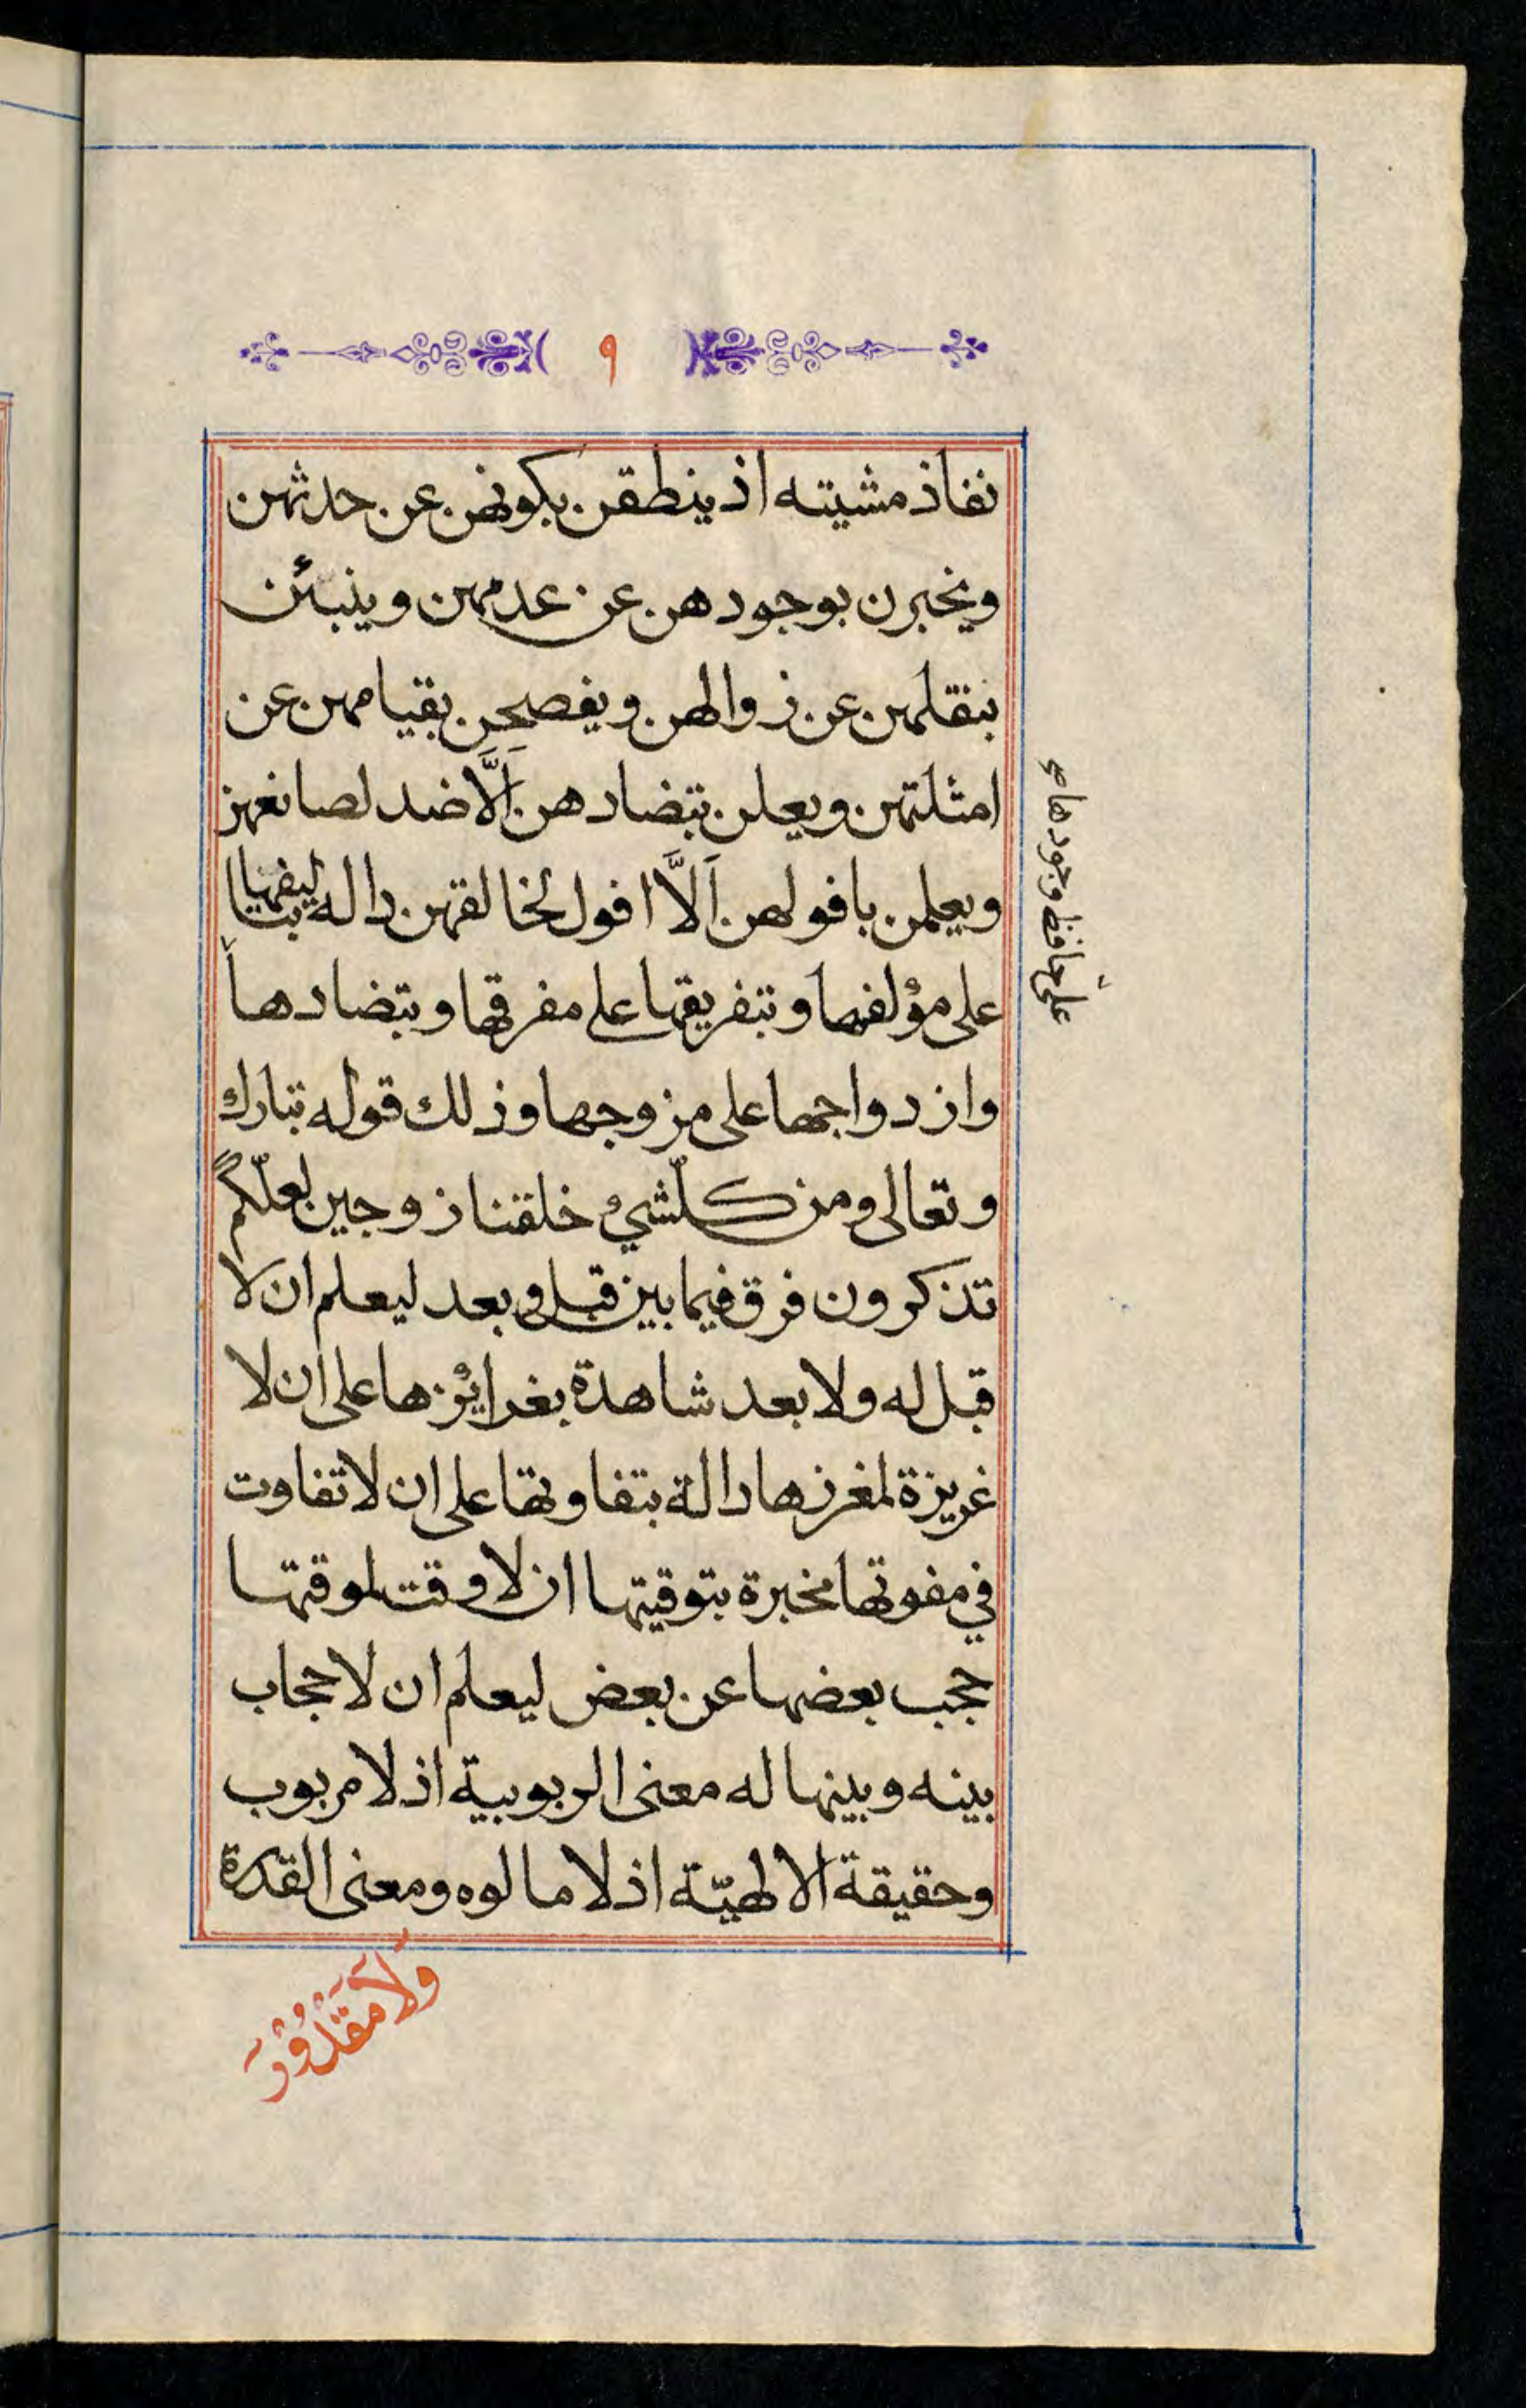 ٩
نفاذ مشيته اذ ينطقن بكونهن عن حدثهن
ويخبرن بوجودهن عن عدمهن وينبئن
بنقلهن عن زوالهن ويفصحن بقيامهن عن
امثلتهن ويعلن بتضادهن اَلَّا ضد لصانعهن
ويعلمن بافولهن اَلَّا افول لخالقهن داله بتاليفها
على مؤلفها وبتفريقها على مفرقها وبتضادها
وازدواجها على مزوجها وذلك قوله تبارك
وتعالى ومن كلّشيء خلقنا زوجين لعلّكم
تذكرون فرق فيما بين قبل وبعد ليعلم ان لا
قبل له ولا بعد شاهدة بغرائزها على ان لا
غريزة لمغرزها دالة بتفاوتها على ان لا تفاوت
في مفوتها مخبرة بتوقيتها ان لا وقت لموقتها
حجب بعضها عن بعض ليعلم ان لا حجاب
بينه وبينها له معنى الربوبية اذ لا مربوب
وحقيقة الالهيّة اذ لا مالوه ومعنى القدرة
وَلَا مَقْدُوْرَ
على حافظ وجودها